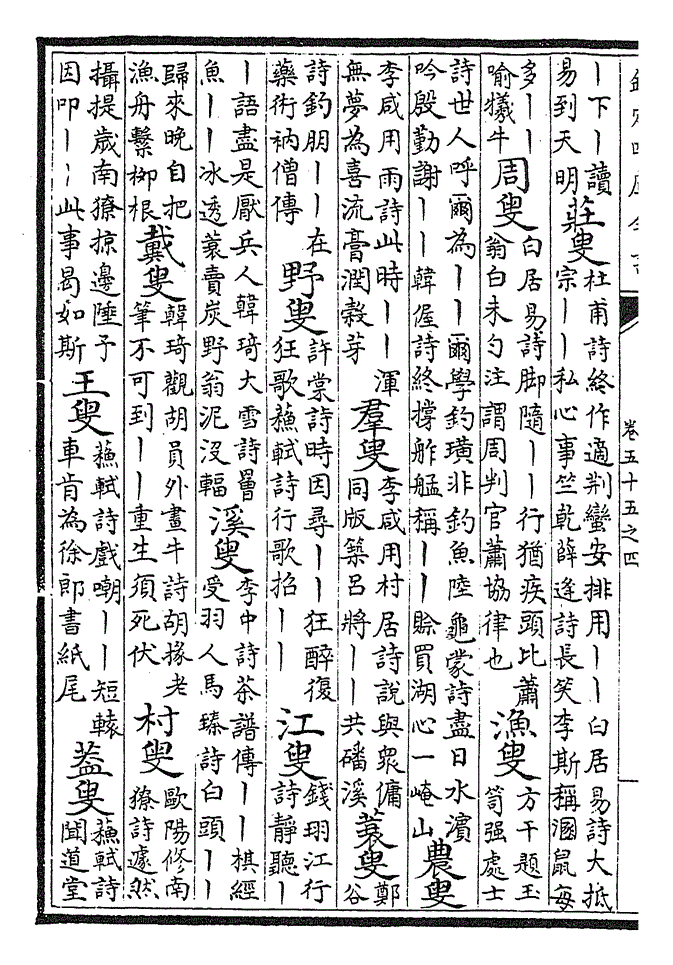 欽定四庫全書
卷五十五之四
｜下｜讀
易到天明
莊叟
杜甫詩終作適荆蠻安排用｜｜白居易詩大抵
宗｜｜私心事竺乾薛逢詩長笑李斯稱溷鼠每
多｜｜
喻犧牛
周叟
白居易詩脚隨｜｜行猶疾頭比蕭
翁白未匀注謂周判官蕭協律也
漁叟
方干題玉
笥强處士
詩世人呼爾為｜｜爾學釣璜非釣魚陸龜蒙詩盡日水濱
吟殷勤謝｜｜韓偓詩終撐舴艋稱｜｜賖買湖心一崦山
農叟
李咸用雨詩此時｜｜渾
無夢為喜流膏潤榖芽
羣叟
李咸用村居詩說與衆傭
同版築吕將｜｜共磻溪
蓑叟
鄭
谷
詩釣朋｜｜在
藥術衲僧傳
野叟
許棠詩時因尋｜｜狂醉復
狂歌蘇軾詩行歌拾｜｜
江叟
錢珝江行
詩靜聽｜
｜語盡是厭兵人韓琦大雪詩罾
魚｜｜冰透蓑賣炭野翁泥沒輻
溪叟
李中詩茶譜傳｜｜棋經
受羽人馬臻詩白頭｜｜
歸來晚自把
漁舟繫栁根
戴叟
韓琦觀胡員外畫牛詩胡掾老
筆不可到｜｜重生須死伏
村叟
歐陽修南
獠詩遽然
攝提歲南獠掠邊陲予
因叩｜｜此事曷如斯
王叟
蘇軾詩戲嘲｜｜短轅
車肯為徐郎書紙尾
葢叟
蘇軾詩
聞道堂